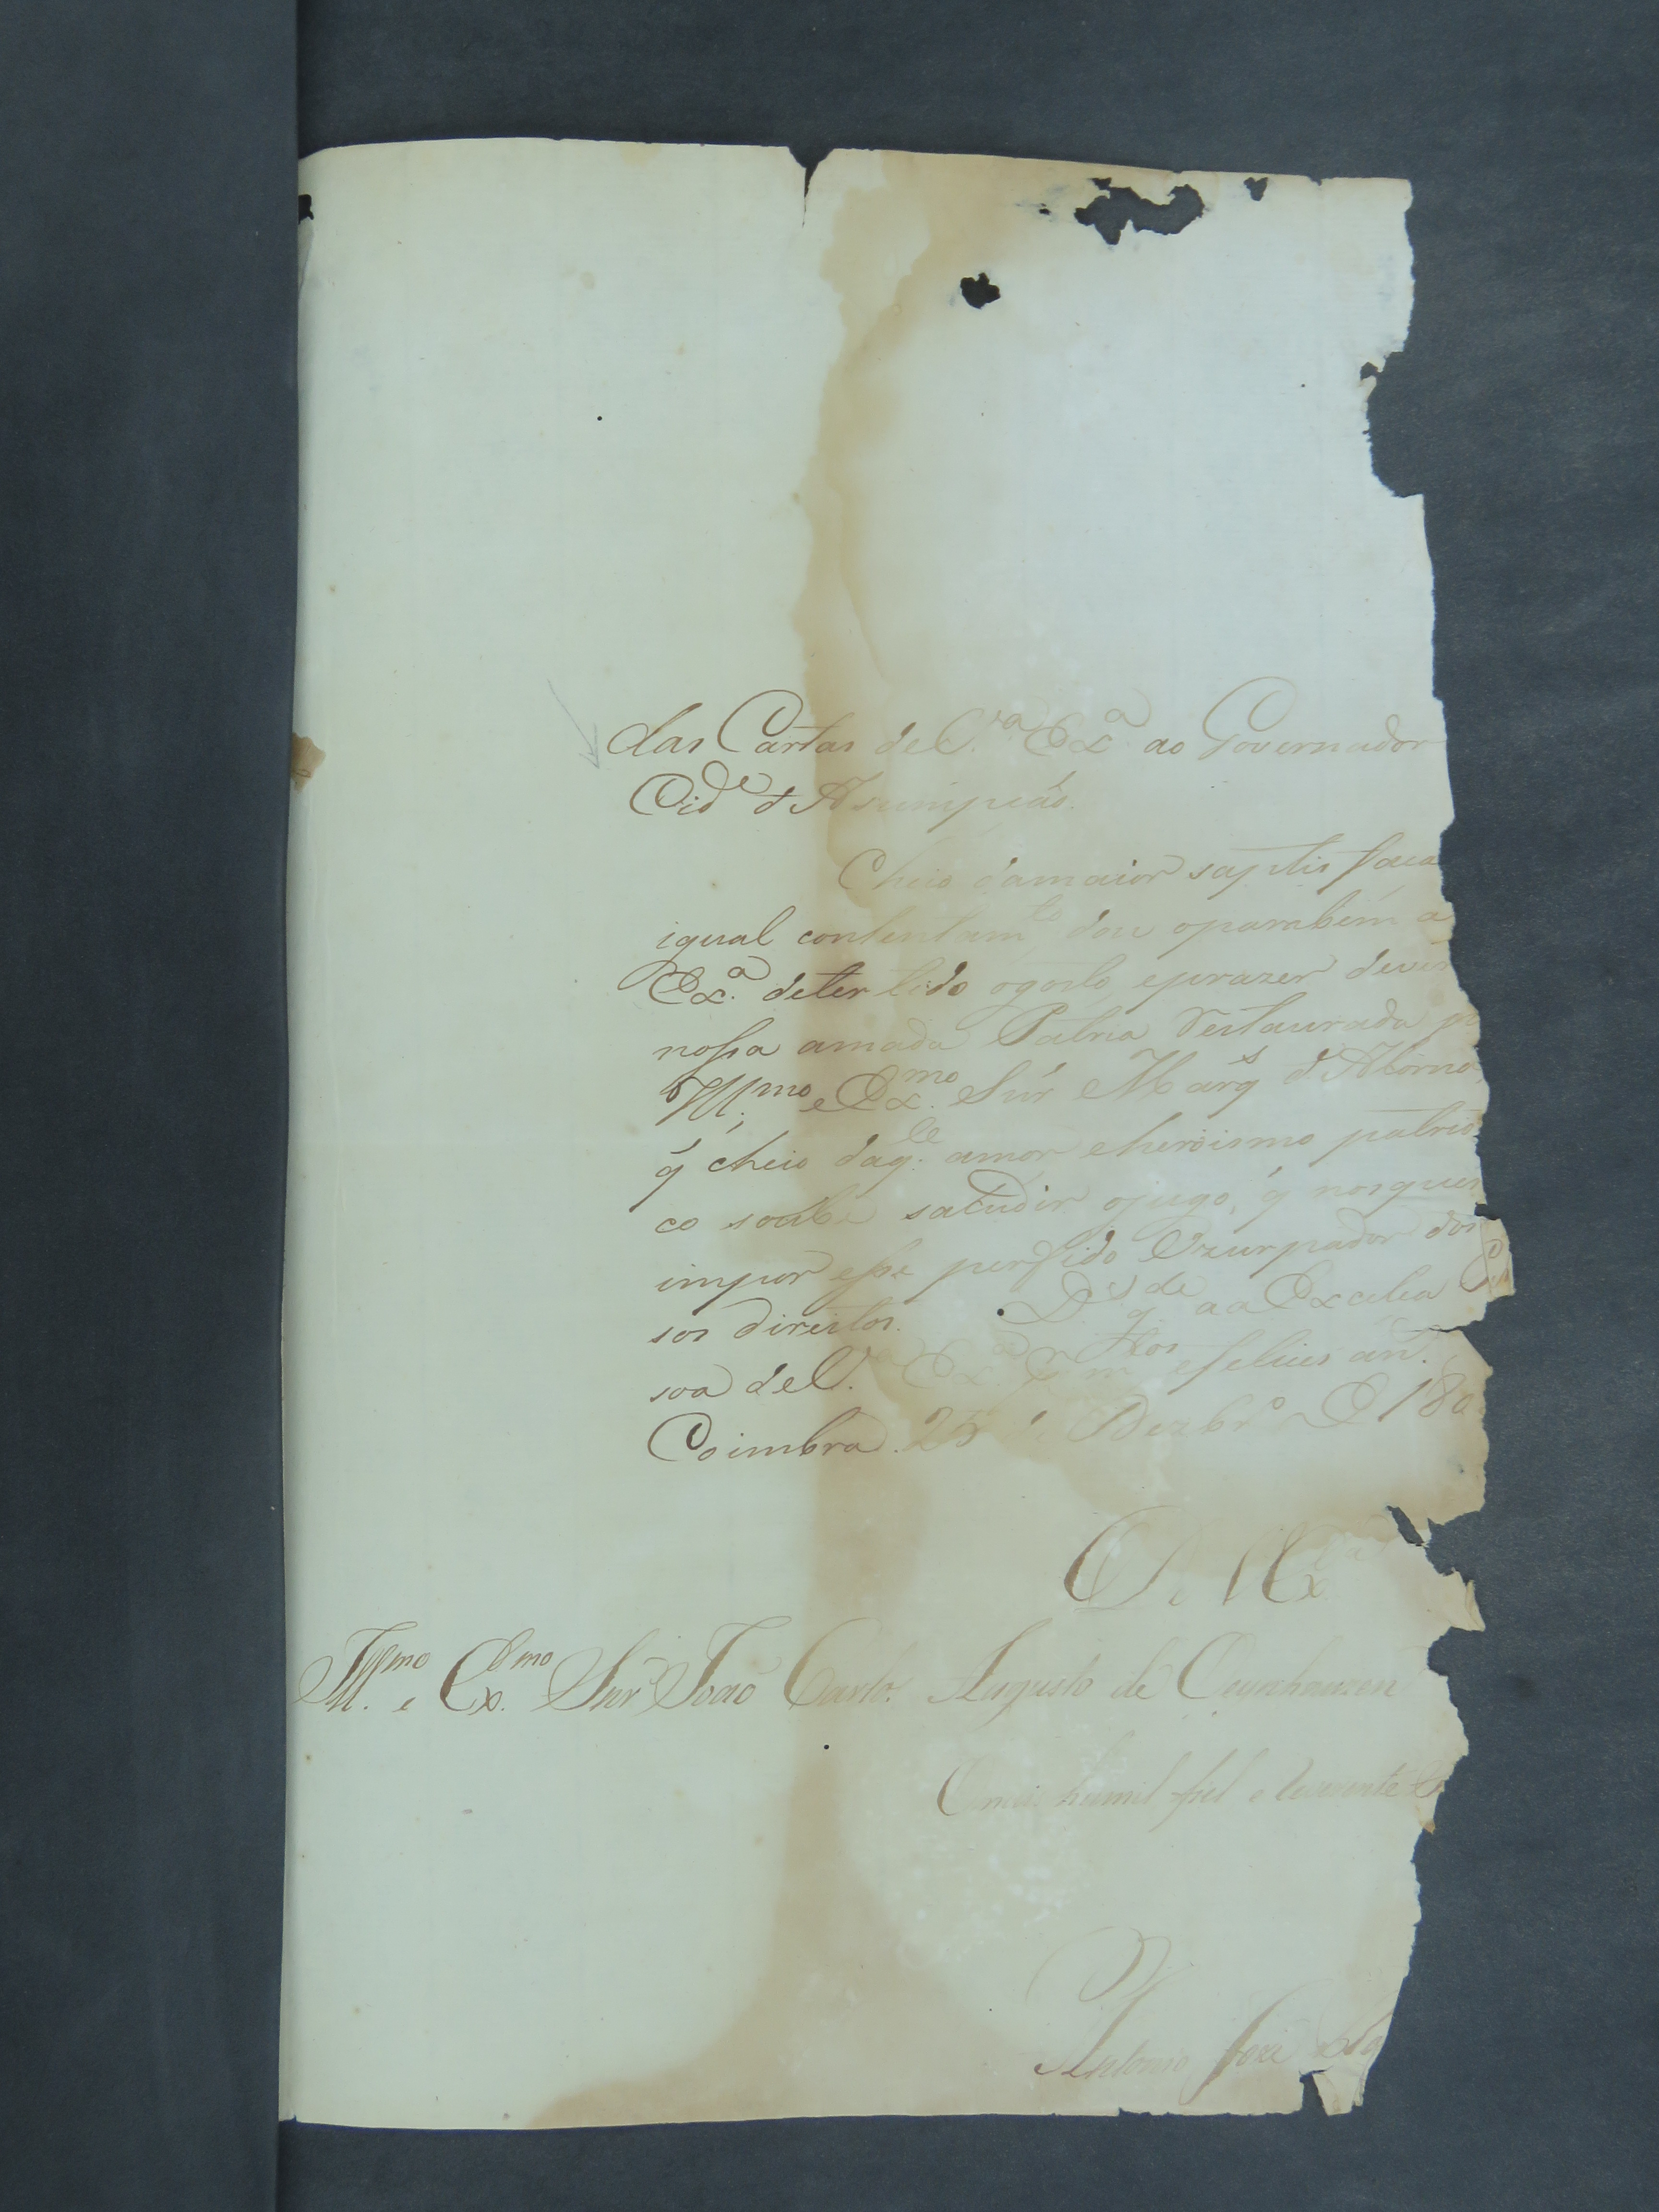 das Cartas de V.ª Ex.ª ao Governador
Cid.e d'Asumpção.
Cheio d'amaior saptisfaca
igual contentam.to dou oparabem a
Ex.ª deter tido ogosto, eprazer dever
nossa amada Patria restaurada p
Ill.mo e Ex.mo Snr Marq.s d'Alorna,
q̃ cheio daq.le amor eheroismo patrio
co soube sacudir ojugo, q̃ nosquer
impor esse perfido Uzurpador dos
sos direitos. D.s g.de aa Excelca P
soa deV. Ex.ª p.r m.tos efelices an.
Coimbra. 25 de Dezbr.o D 180
De V Ex.ª
Ill.mo e Ex.mo Snr João Carlos Augusto de Oeynhausen
O mais humil fiel e reverente
Antonio José